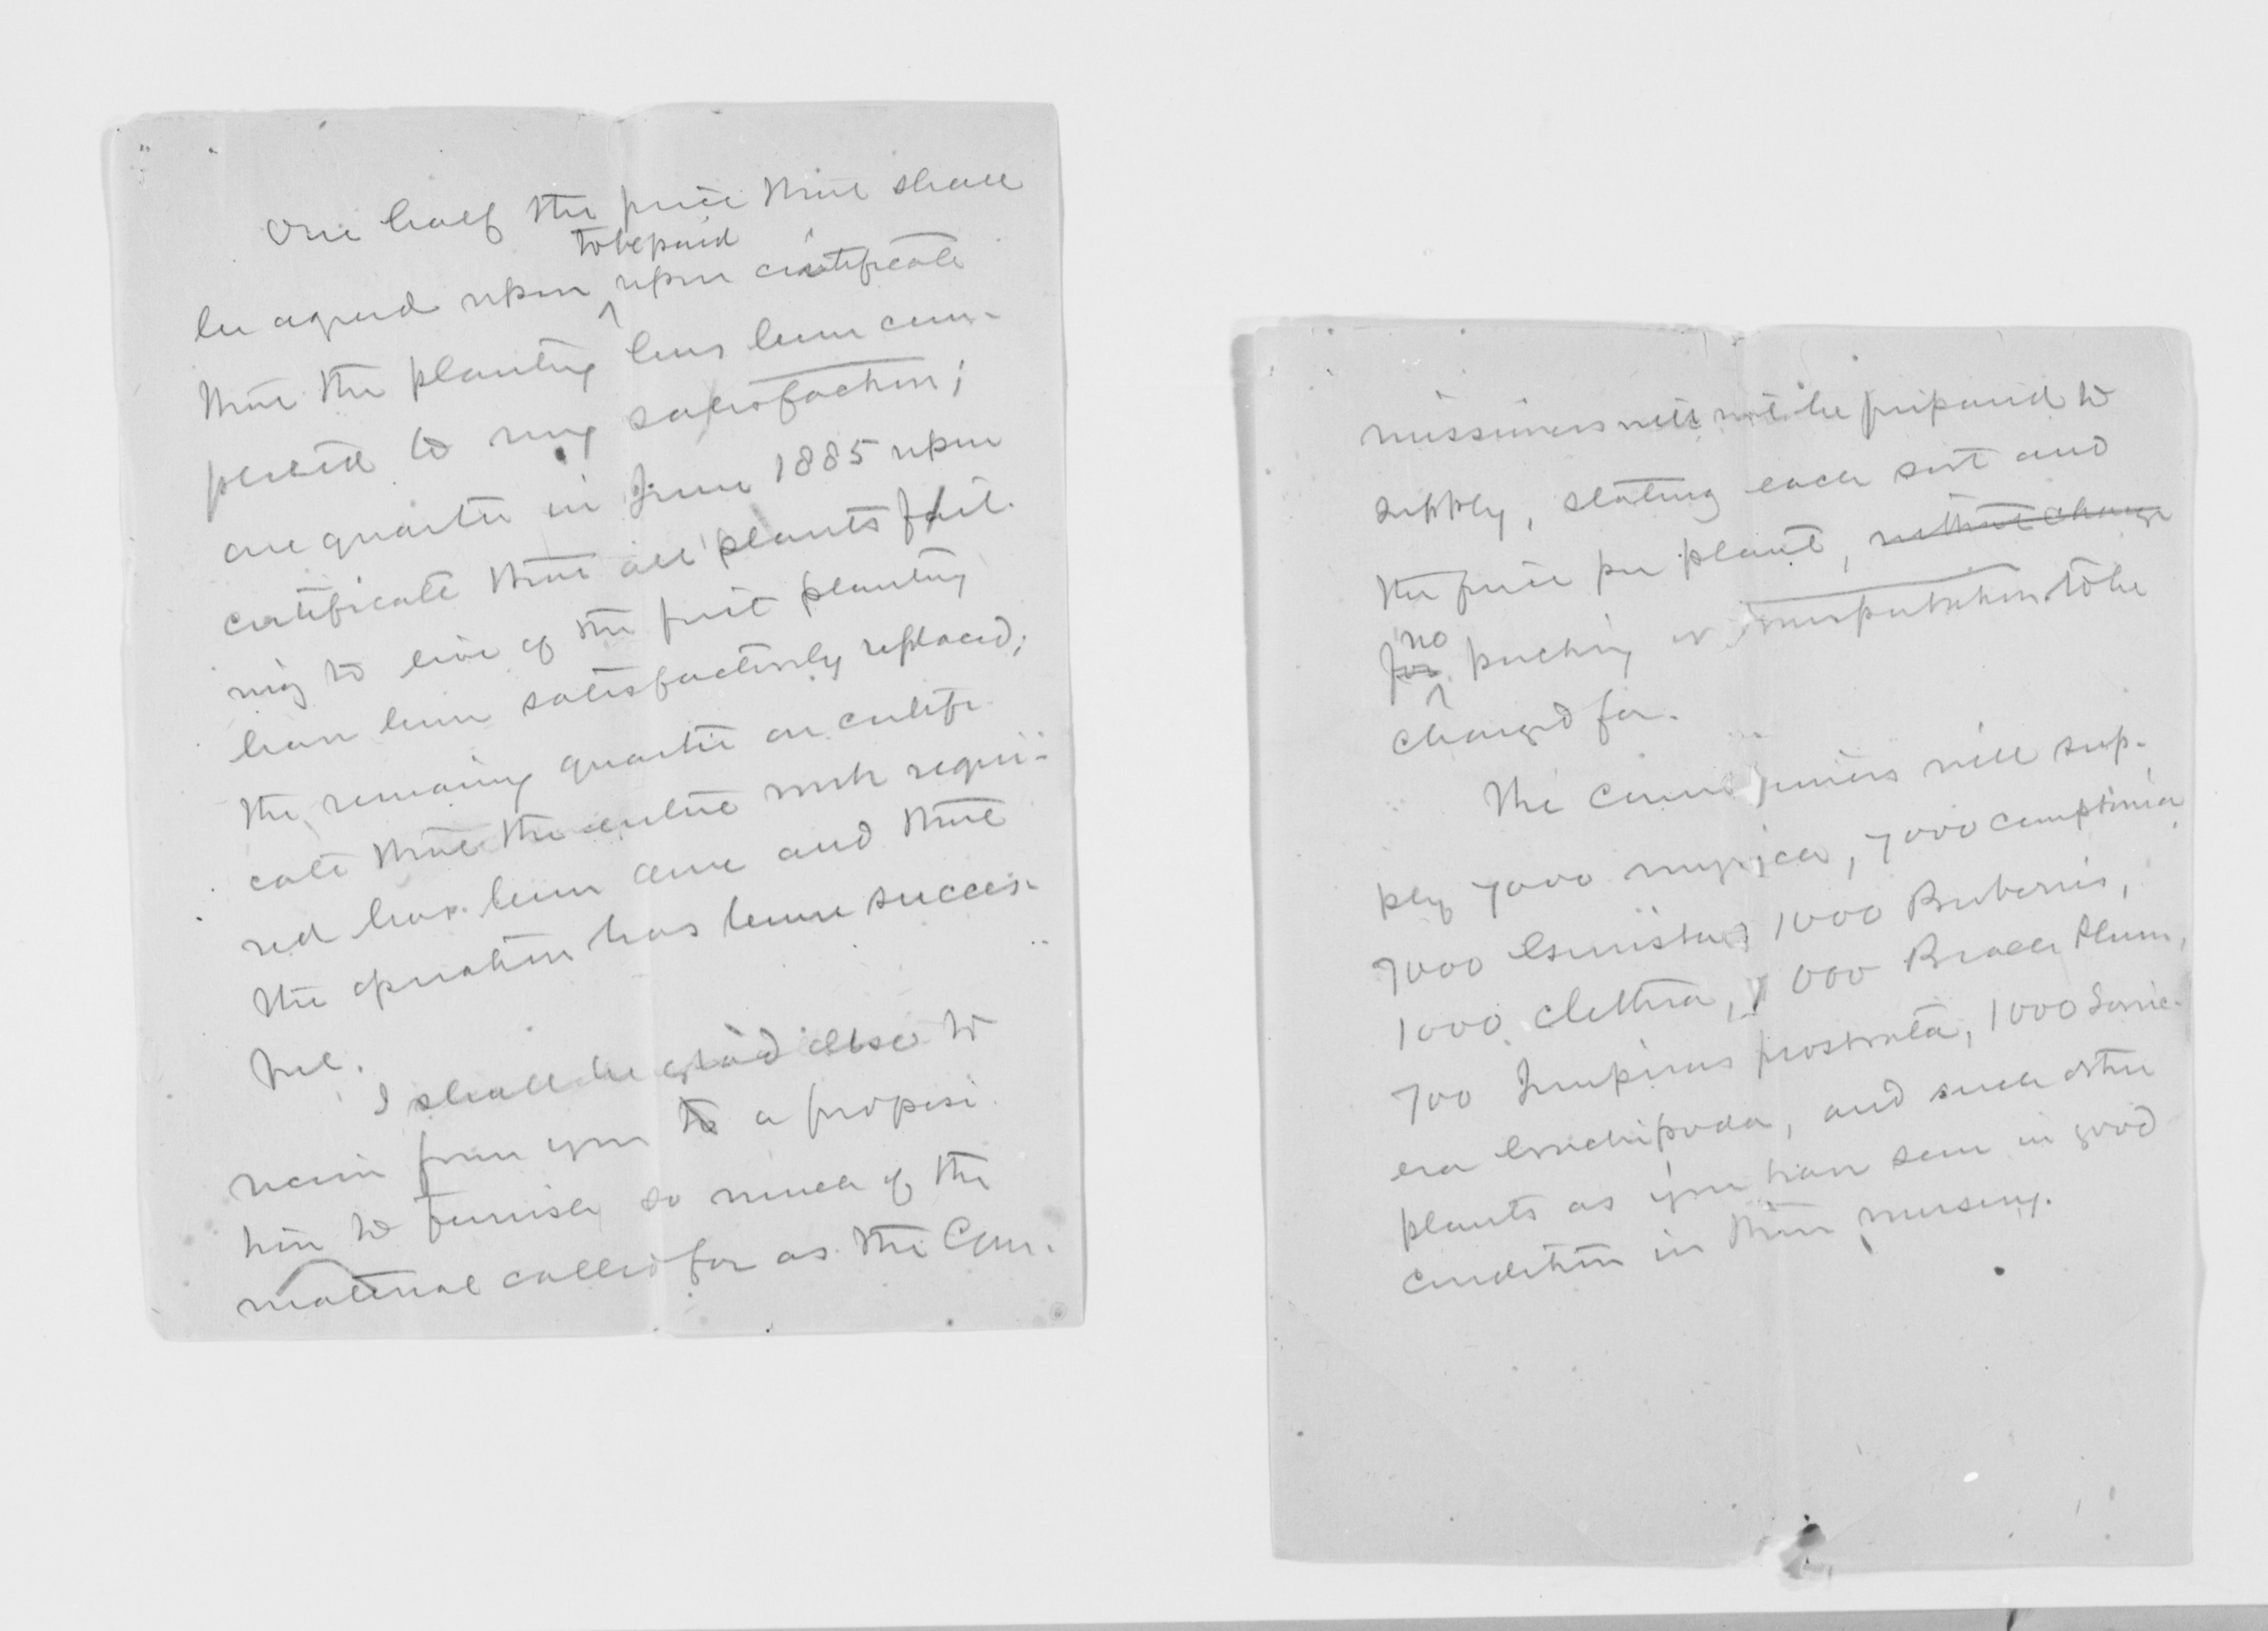 One half the price that shall
to be paid
be agreed upon ^ upon certificate
that the planting has been com-
pleted to my satisfaction;
one quarter in June 1885 upon
certificate that all plants fail-
ing to live of the first planting
have been satisfactorily replaced;
the remaining quarter on certifi-
cate that the entire work requi-
red has been done and that
the operation has been success-
ful.
I shall be glad also to
receive from you to a proposi-
tion to furnish so much of the
material called for as the Com-
missioners will not be prepared to
supply, stating each sort and
the price per plant, without charge
no
for ^ packing or transportation to be
charged for.
The Commissioners will sup-
ply 7000 myrica, 7000 comptonia
7000 Genista, 1000 Berberis,
1000 clethra, 1000 Beach Plum,
700 Juniperus prostrata, 1000 Lonic-
era brachypoda, and such other
plants as you have seen in good
condition in their nursery.